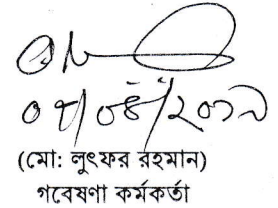 ০৭/০৪/২০১৯
(মো: লুৎফর রহমান)
গবেষণা কর্মকর্তা